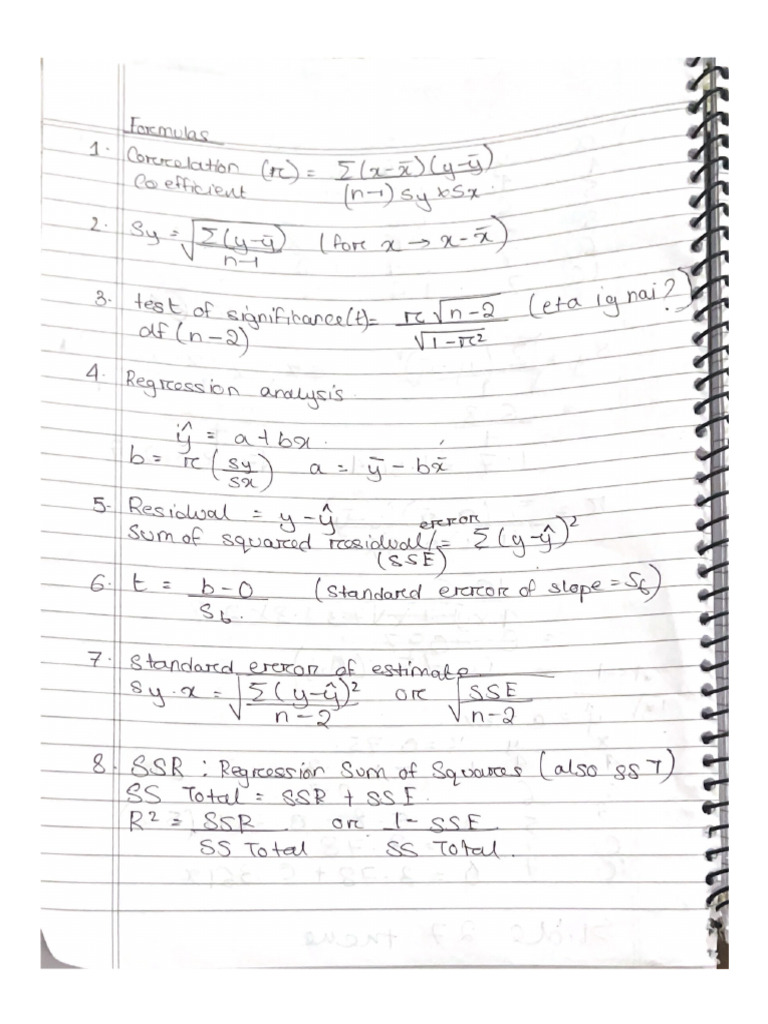 Formulas
1. Correlation (r) = Σ(x-x̄)(y-ȳ)
Coefficient (n-1) Sy * Sx.
2. Sy = √Σ(y-ȳ) / n-1 (for x → x-x̄)
3. test of significance(t)= r√n-2 / √1-r² (eta ig nai?)
df(n-2)
4. Regression analysis
ŷ = a+bx.
b = r(sy/sx) a = ȳ - bx̄
5. Residual = y-ŷ
Sum of squared residual/error = Σ(y-ŷ)²
(SSE)
6. t = b-0 / Sb. (Standard error of slope = Sb)
7. Standard error of estimate
Sy.x = √Σ(y-ŷ)² / n-2 or √SSE / n-2
8. SSR : Regression Sum of Squares (also SST)
SS Total = SSR + SSE.
R² = SSR or 1- SSE
SS Total SS Total.